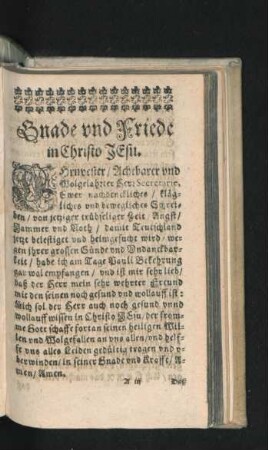 Gnade vnd Friede
in Christo JEsu.
Ehrnvester / Achtbarer vnd
Wolgelahrter Herr Secretarie,
Ewer nachdenckliches / kläg-
liches vnd bewegliches Schrei-
ben / von jetziger trübseliger Zeit / Angst /
Jammer vnd Noth / damit Teutschland
jetzt belestiget vnd heimgesucht wird / we-
gen jhrer grossen Sünde vnd Vndanckbar-
keit / habe ich am Tage Pauli Bekehrung
gar wol empfangen / vnd ist mir sehr lieb /
daß der Herr mein sehr wehrter Freund
mit den seinen noch gesund vnd wollauff ist:
Mich sol der Herr auch noch gesund vnnd
wollauff wissen in Christo JEsu / der from-
me Gott schaffe fortan seinen heiligen Wil-
len vnd Wolgefallen an vns allen / vnd helf-
fe vns alles Leiden gedültig tragen vnd v-
berwinden / in seiner Gnade vnd Krafft / A-
men / Amen.
A iij Daß